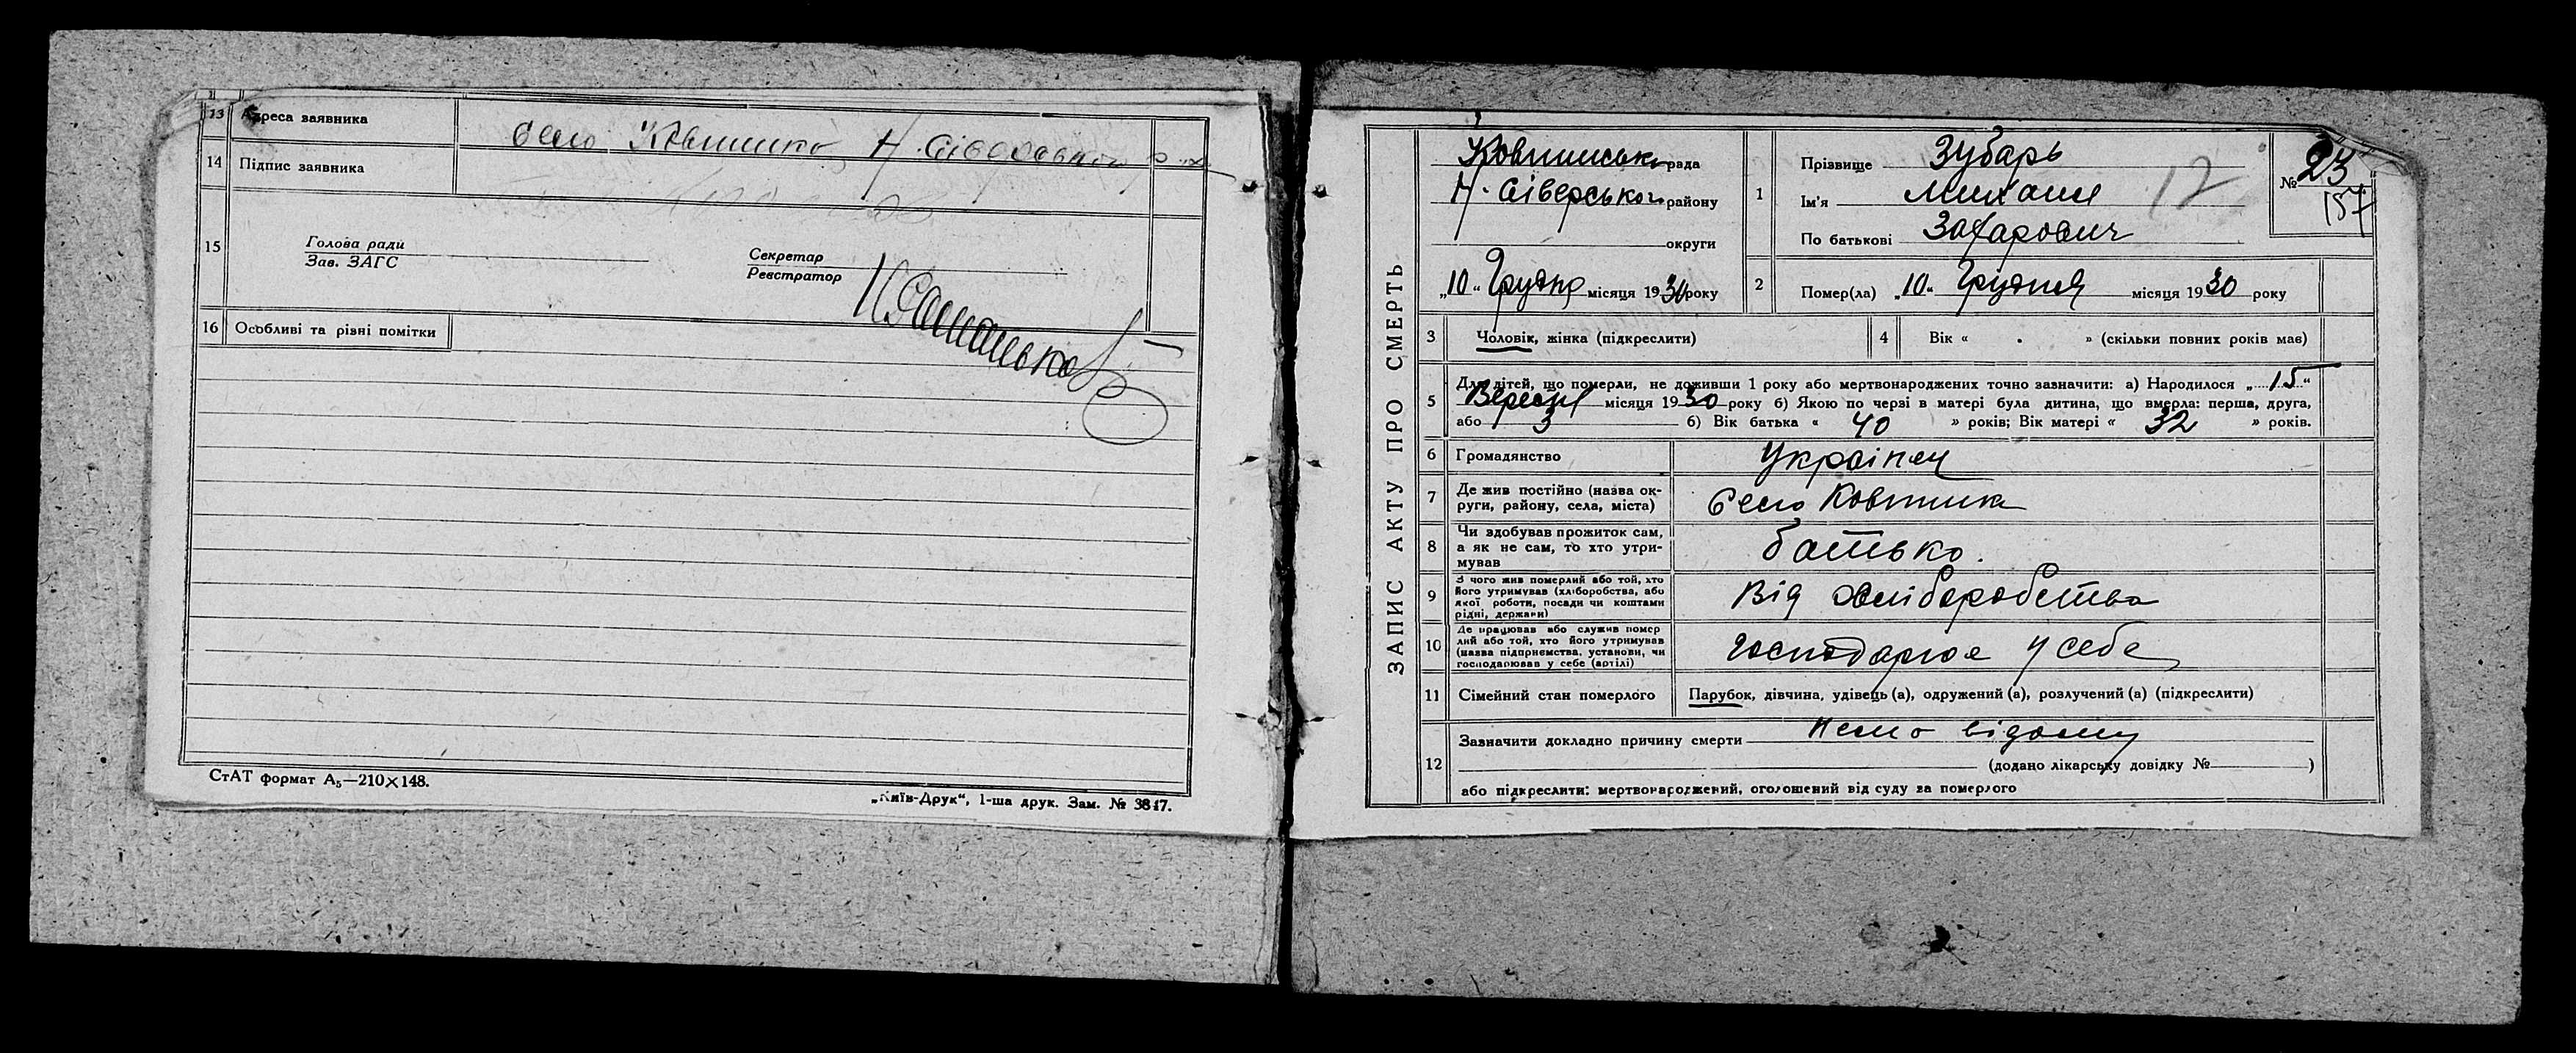 13 Адреса заявника село Ковпинка Н. Сіверськог р-на
14 Підпис заявника
15 Голова ради
Зав. ЗАГС
Секретар
Реєстратор
16 Особливі та різні помітки
СтАТ формат А₅—210×148.
„Київ-Друк“, 1-ша друк. Зам. № 3817.
ЗАПИС АКТУ ПРО СМЕРТЬ
Ковпинська рада
Н. Сіверського району
округи
„10“ Грудня місяця 1930 року
1 Прізвище Зубарь
Ім'я Михаил
По батькові Захарович
12
№ 23
157
2 Помер(ла) „10“ Грудня місяця 1930 року
3 Чоловік, жінка (підкреслити)
4 Вік « » (скільки повних років має)
5 Для дітей, що померли, не доживши 1 року або мертвонароджених точно зазначити: а) Народилося „15“
Вересня місяця 1930 року б) Якою по черзі в матері була дитина, що вмерла: перша, друга,
або 3 б) Вік батька « 40 » років; Вік матері « 32 » років.
6 Громадянство Українец
7 Де жив постійно (назва ок-
руги, району, села, міста) Село Ковпинка
8 Чи здобував прожиток сам,
а як не сам, то хто утри-
мував батько.
9 З чого жив померлий або той, хто
його утримував (хліборобства, або
якої роботи, посади чи коштами
рідні, держави) Від хліборобства
10 Де працював або служив помер
лий або той, хто його утримував
(назва підприємства, установи, чи
господарював у себе (артілі) господарює у себе
11 Сімейний стан померлого Парубок, дівчина, удівець (а), одружений (а), розлучений (а) (підкреслити)
12 Зазначити докладно причину смерти
(додано лікарську довідку № )
або підкреслити: мертвонароджений, оголошений від суду за померлого